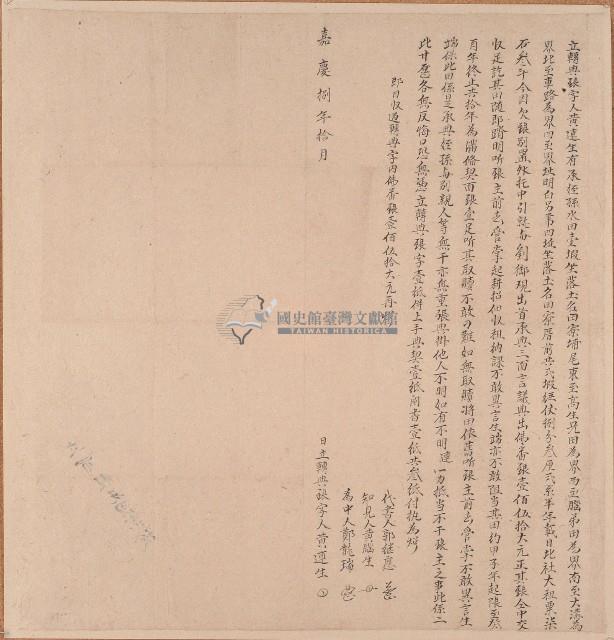 立轉典字人黃達生有承侄孫水田壹塅坐落土名西寮埔尾東至高生兄田為界西至騰弟田為界南至大溝為
界北至車路為界四至界址明白另帶四坡坐落土名田寮厝前共弍塅經伙捌分叁厘弍系半年載日北社大租粟柒
石叁斗今因欠銀別置外托中引就與劉 御現出首承典三面言議典出佛番銀壹佰伍拾大元正其銀仝中交
收足訖其田隨即踏明听張主前去管掌起耕招佃收租納課不敢異言生端亦不敢阻当其田約甲子年起限至癸
酉年終止共拾年為滿備契面銀壹足听其取贖不敢刁難如無取贖將田依舊听張主前去管掌不敢異言生
端保此田係是承典侄孫與別親人等無干亦無重張典掛他人不明如有不明達一力抵当不干張主之事此係二
比甘愿各無反悔口恐無憑立轉典銀字壹紙併上手典契壹紙鬮書壹紙共叁紙付执為炤
即日收過轉典字內佛番銀壹佰伍拾大元再炤
國史館臺灣文獻館
TAIWAN HISTORICA
代書人郭継應
知見人黃騰生
為中人鄭龍瑞
日立轉典銀字人黃達生
嘉慶捌年拾月